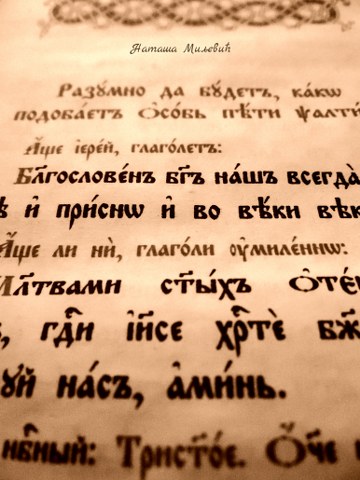 Наташа Миљевић
Разꙋмно да бꙋдетъ, какѡ
подоба́етъ Ѻсо́бь пѣ́ти ѱалти
А҆́ще і҆ере́й, глаго́летъ:
Бл҃гослове́нъ бг҃ъ на́шъ всегда̀
и҆ при́снѡ и҆ во вѣ́ки вѣк
А҆́ще ли нѝ, глаго́ли ᲂу҆миле́ннѡ:
мл҃твами ст҃ы́хъ Ѻ҆те́
гдⷭ҇и і҆и҃се хрⷭ҇тѐ бж҃
на́съ, а҆ми́нь.
Трист҃о́е. Ѻ҆́ч҃е